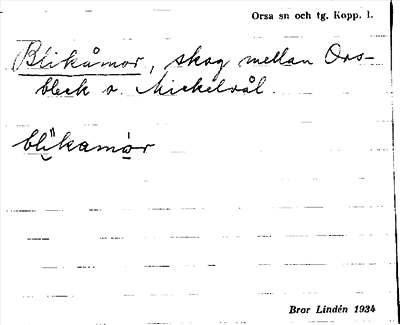 Orsa sn och tg. Kopp. l.
Blikåmor, skog mellan Ors-
bleck o. Mickelvål.
blikamor
Bror Lindén 1934